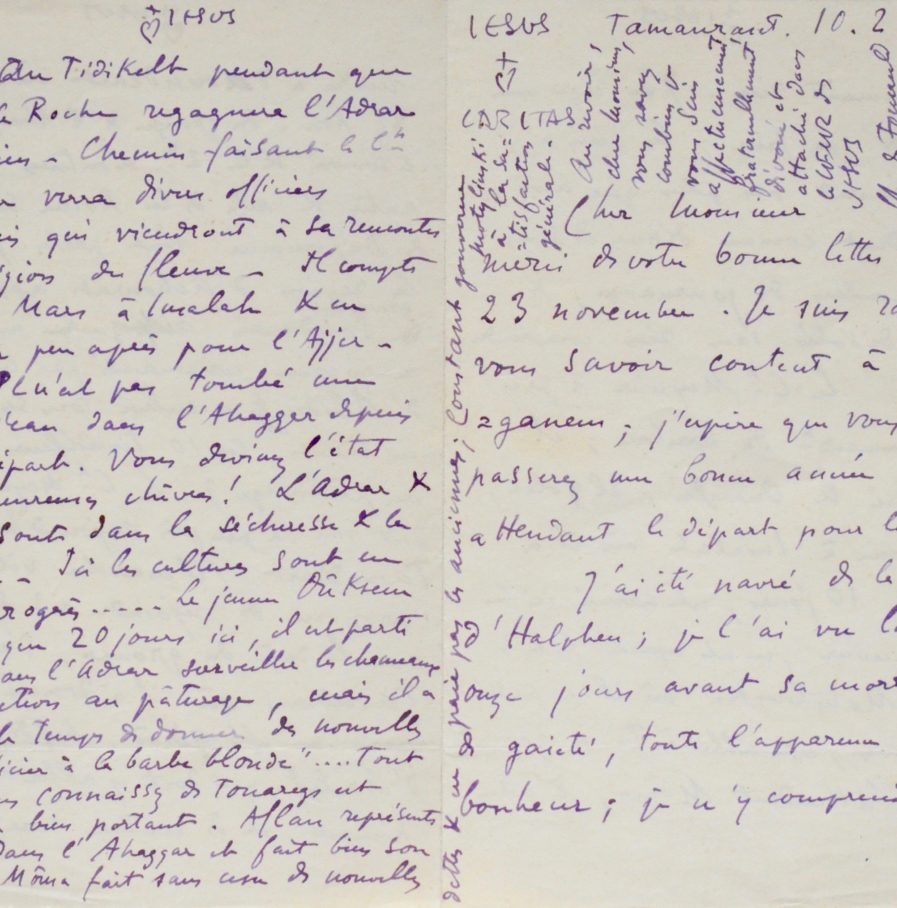 JESUS
au Tidikelt pendant que
Roche regagnera l'Adrar
Chemin faisant le Ct
verra divers officiers
qui viendront à sa rencontre
du fleuve - Il compte
Mars à Imalah & en
peu après pour l'Ajjer -
n'est pas tombé une
d'eau dans l'Ahaggar depuis
Vous devinez l'état
chèvres ! L'Adrar &
sont dans la sécheresse & la
Ici les cultures sont en
..... Le jeune Ouksem
que 20 jours ici, il est parti
dans l'Adrar surveiller les chameaux
au pâturage, mais il a
le temps de donner des nouvelles
à la barbe blonde".... Tout
connaissez de Touaregs est
bien portant. Aflan représente
dans l'Ahaggar et fait bien son
Môusa fait sans cesse de nouvelles
dettes & ne paie pas les anciennes ; Constant gouverne
Motylinski
à la sa=
=tisfaction
générale.
IESUS
CARITAS
Tamanraset. 10.2
Au revoir,
cher Monsieur,
vous savez
combien je
vous suis
affectueusement
fraternellement
dévoué et
attaché dans
le CŒUR de
JESUS
Cher Monsieur
merci de votre bonne lettre
23 novembre. Je suis
vous savoir content à
zganem ; j'espère que vous
passerez une bonne année
attendant le départ pour
J'ai été navré de la
d'Halphen ; je l'ai vu
onze jours avant sa mort
gaieté, toute l'apparence
bonheur ; je n'y comprenais